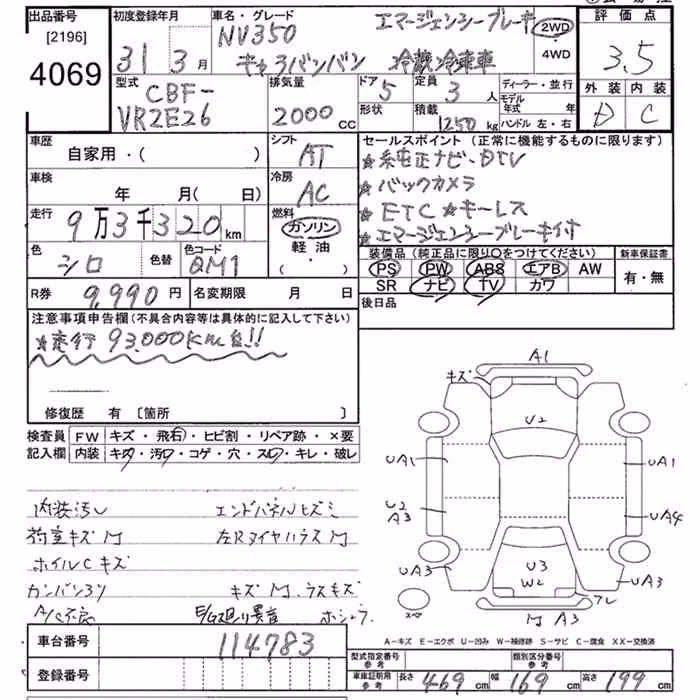 出品番号 [2196] 4069
初度登録年月 31 3月
車名・グレード エマージェンシーブレーキ
NV350
キャラバンバン 冷蔵冷凍車
2WD
4WD
評価点 3.5
外装 内装
D C
型式 CBF-
VR2E26
排気量 2000cc
ドア 5
形状
定員 3人
積載 1250kg
ディーラー・並行
モデル年式 年
ハンドル 左・右
車歴 自家用・( )
シフト AT
車検 年 月(日)
冷房 AC
走行 9万3千320km
燃料 ガソリン
軽油
( ・ )
色 シロ
色替
色コード QM1
R券 9,990円
名変期限 月 日
セールスポイント(正常に機能するものに限ります)
★純正ナビ・DTV
★バックカメラ
★ETC★キーレス
★エマージェンシーブレーキ付
装備品(純正品に限り○をつけてください)
PS PW ABS エアB AW
SR ナビ TV カワ
新車保証書
有・無
後日品
注意事項申告欄(不具合内容等は具体的に記入して下さい)
★走行93,000km台!!
修復歴 有 [箇所 ]
検査員記入欄
FW キズ・飛石・ヒビ割・リペア跡・×要
内装 キズ・汚レ・コゲ・穴・スレ・キレ・破レ
内装汚レ エンドパネルヒズミ
荷室キズM 左RタイヤハウスM
ホイルCキズ
カンバン跡 キズM,ラスキズ
A/C不良 E/G廻リ異音 ホシャラ
車台番号 114783
登録番号
A1
キズ
U2
UA1
UA1
U2
A3
UA4
UA3
U3
W2
UA3
フレ
スペア
M A3
A-キズ E-エクボ U-凹み W-補修跡 S-サビ C-腐食 XX-交換済
型式指定番号参考
類別区分番号参考
車庫証明用参考 長さ 469cm 幅 169cm 高さ 199cm